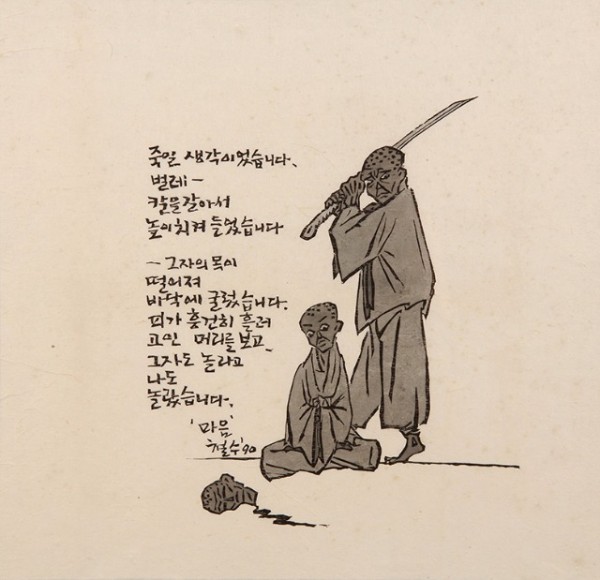 죽일 생각이었습니다.
벌레—
칼을 갈아서
높이 치켜 들었습니다
— 그자의 목이
떨어져
바닥에 굴렀습니다.
피가 흥건히 흘러
고인 머리를 보고
그자도 놀라고
나도
놀랐습니다.
'마음'
철수 '90